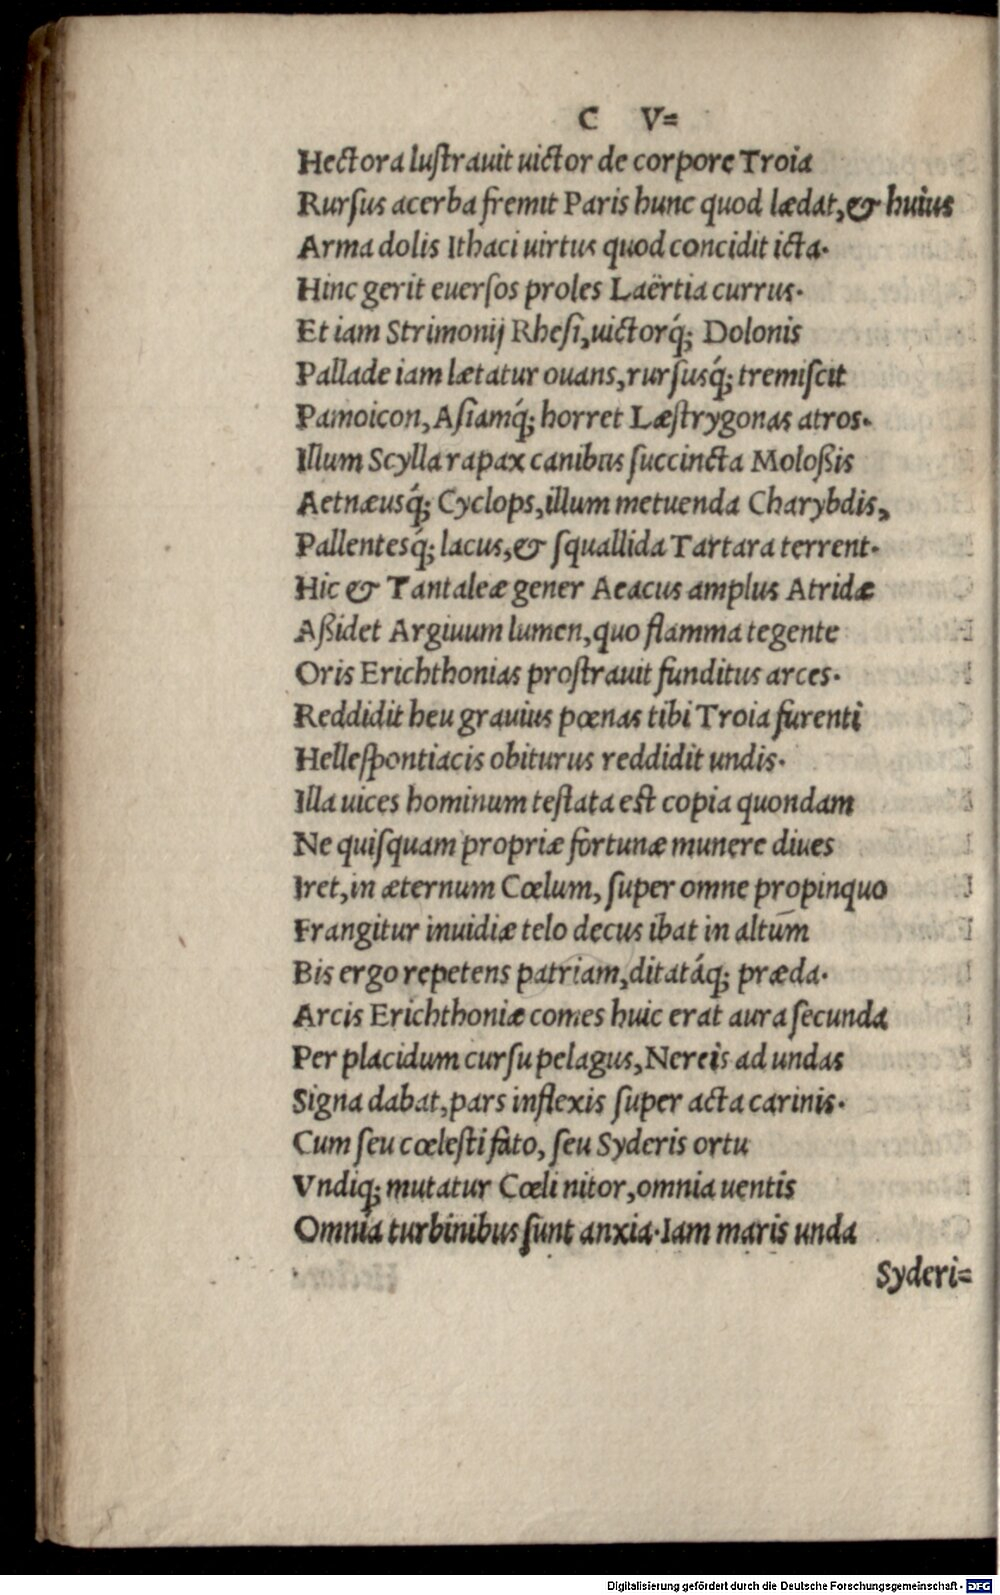 C V=
Hectora lustrauit uictor de corpore Troia
Rursus acerba fremit Paris hunc quod lædat,& huius
Arma dolis Ithaci uirtus quod concidit icta.
Hinc gerit euersos proles Laërtia currus.
Et iam Strimonij Rhesi,uictorq́; Dolonis
Pallade iam lætatur ouans,rursusq́; tremiscit
Pamoicon, Asiamq́; horret Læstrygonas atros.
Illum Scylla rapax canibus succincta Moloßis
Aetnæusq́; Cyclops,illum metuenda Charybdis,
Pallentesq́; lacus,& squallida Tartara terrent.
Hic & Tantaleæ gener Aeacus amplus Atridæ
Aßidet Argiuum lumen,quo flamma tegente
Oris Erichthonias prostrauit funditus arces.
Reddidit heu grauius pœnas tibi Troia furenti
Hellespontiacis obiturus reddidit undis.
Illa uices hominum testata est copia quondam
Ne quisquam propriæ fortunæ munere diues
Iret,in æternum Cœlum, super omne propinquo
Frangitur inuidiæ telo decus ibat in altum̄
Bis ergo repetens patriam,ditatáq; præda.
Arcis Erichthoniæ comes huic erat aura secunda
Per placidum cursu pelagus,Nereis ad undas
Signa dabat,pars inflexis super acta carinis.
Cum seu cœlesti fato, seu Syderis ortu
Vndiq; mutatur Cœli nitor,omnia uentis
Omnia turbinibus sunt anxia.Iam maris unda
Syderi=
Digitalisierung gefördert durch die Deutsche Forschungsgemeinschaft - DFG